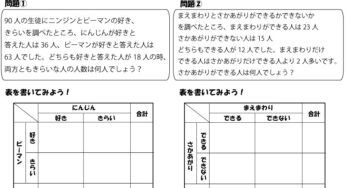 問題①
90 人の生徒にニンジンとピーマンの好き、
きらいを調べたところ、にんじんが好きと
答えた人は 36 人、ピーマンが好きと答えた人は
63 人でした。どちらも好きと答えた人が 18 人の時、
両方ともきらいな人の人数は何人でしょう？
表を書いてみよう！
にんじん
合計
好き
きらい
ピーマン
好き
きらい
問題②
まえまわりとさかあがりができるかできないか
を調べたところ、まえまわりができる人は 23 人
さかあがりができない人は 15 人
どちらもできる人が 12 人でした、まえまわりだけ
できる人はさかあがりだけできる人より 2 人多いです。
さかあがりができる人は何人でしょう？
表を書いてみよう！
まえまわり
合計
できる
できない
さかあがり
できる
できない